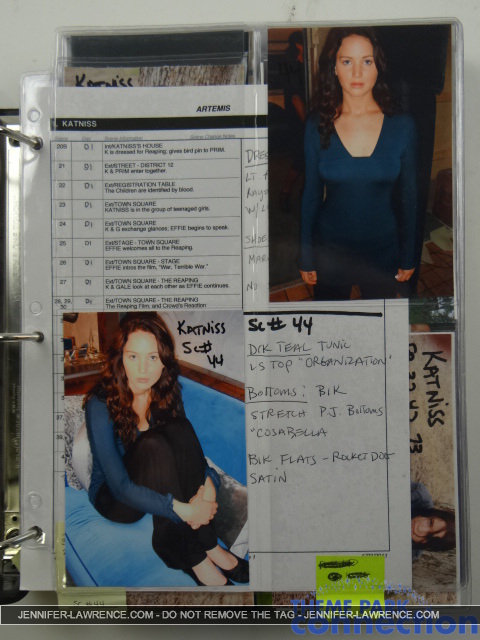 KATNISS
ARTEMIS
KATNISS
20B D1 Int/KATNISS'S HOUSE
K is dressed for Reaping; gives bird pin to PRIM.
21 D1 Ext/STREET - DISTRICT 12
K & PRIM enter together.
22 D1 Ext/REGISTRATION TABLE
The Children are identified by blood.
23 D1 Ext/TOWN SQUARE
KATNISS is in the group of teenaged girls.
24 D1 Ext/TOWN SQUARE
K & G exchange glances; EFFIE begins to speak.
25 D1 Ext/STAGE - TOWN SQUARE
EFFIE welcomes all to the Reaping.
26 D1 Ext/TOWN SQUARE - STAGE
EFFIE intros the film, "War, Terrible War."
27 D1 Ext/TOWN SQUARE - THE REAPING
K & GALE look at each other as EFFIE continues.
28, 29, 30 D1 Ext/TOWN SQUARE - THE REAPING
The Reaping Film; and Crowd's Reaction
KATNISS
Sc#
44
Sc# 44
DRK TEAL TUNIC
L/S TOP "ORGANIZATION"
BOTTOMS: BLK
STRETCH P.J. BOTTOMS
"COSABELLA
BLK FLATS - ROCKET DOG
SATIN
KATNISS
THEME PARK
connection
JENNIFER-LAWRENCE.COM - DO NOT REMOVE THE TAG - JENNIFER-LAWRENCE.COM